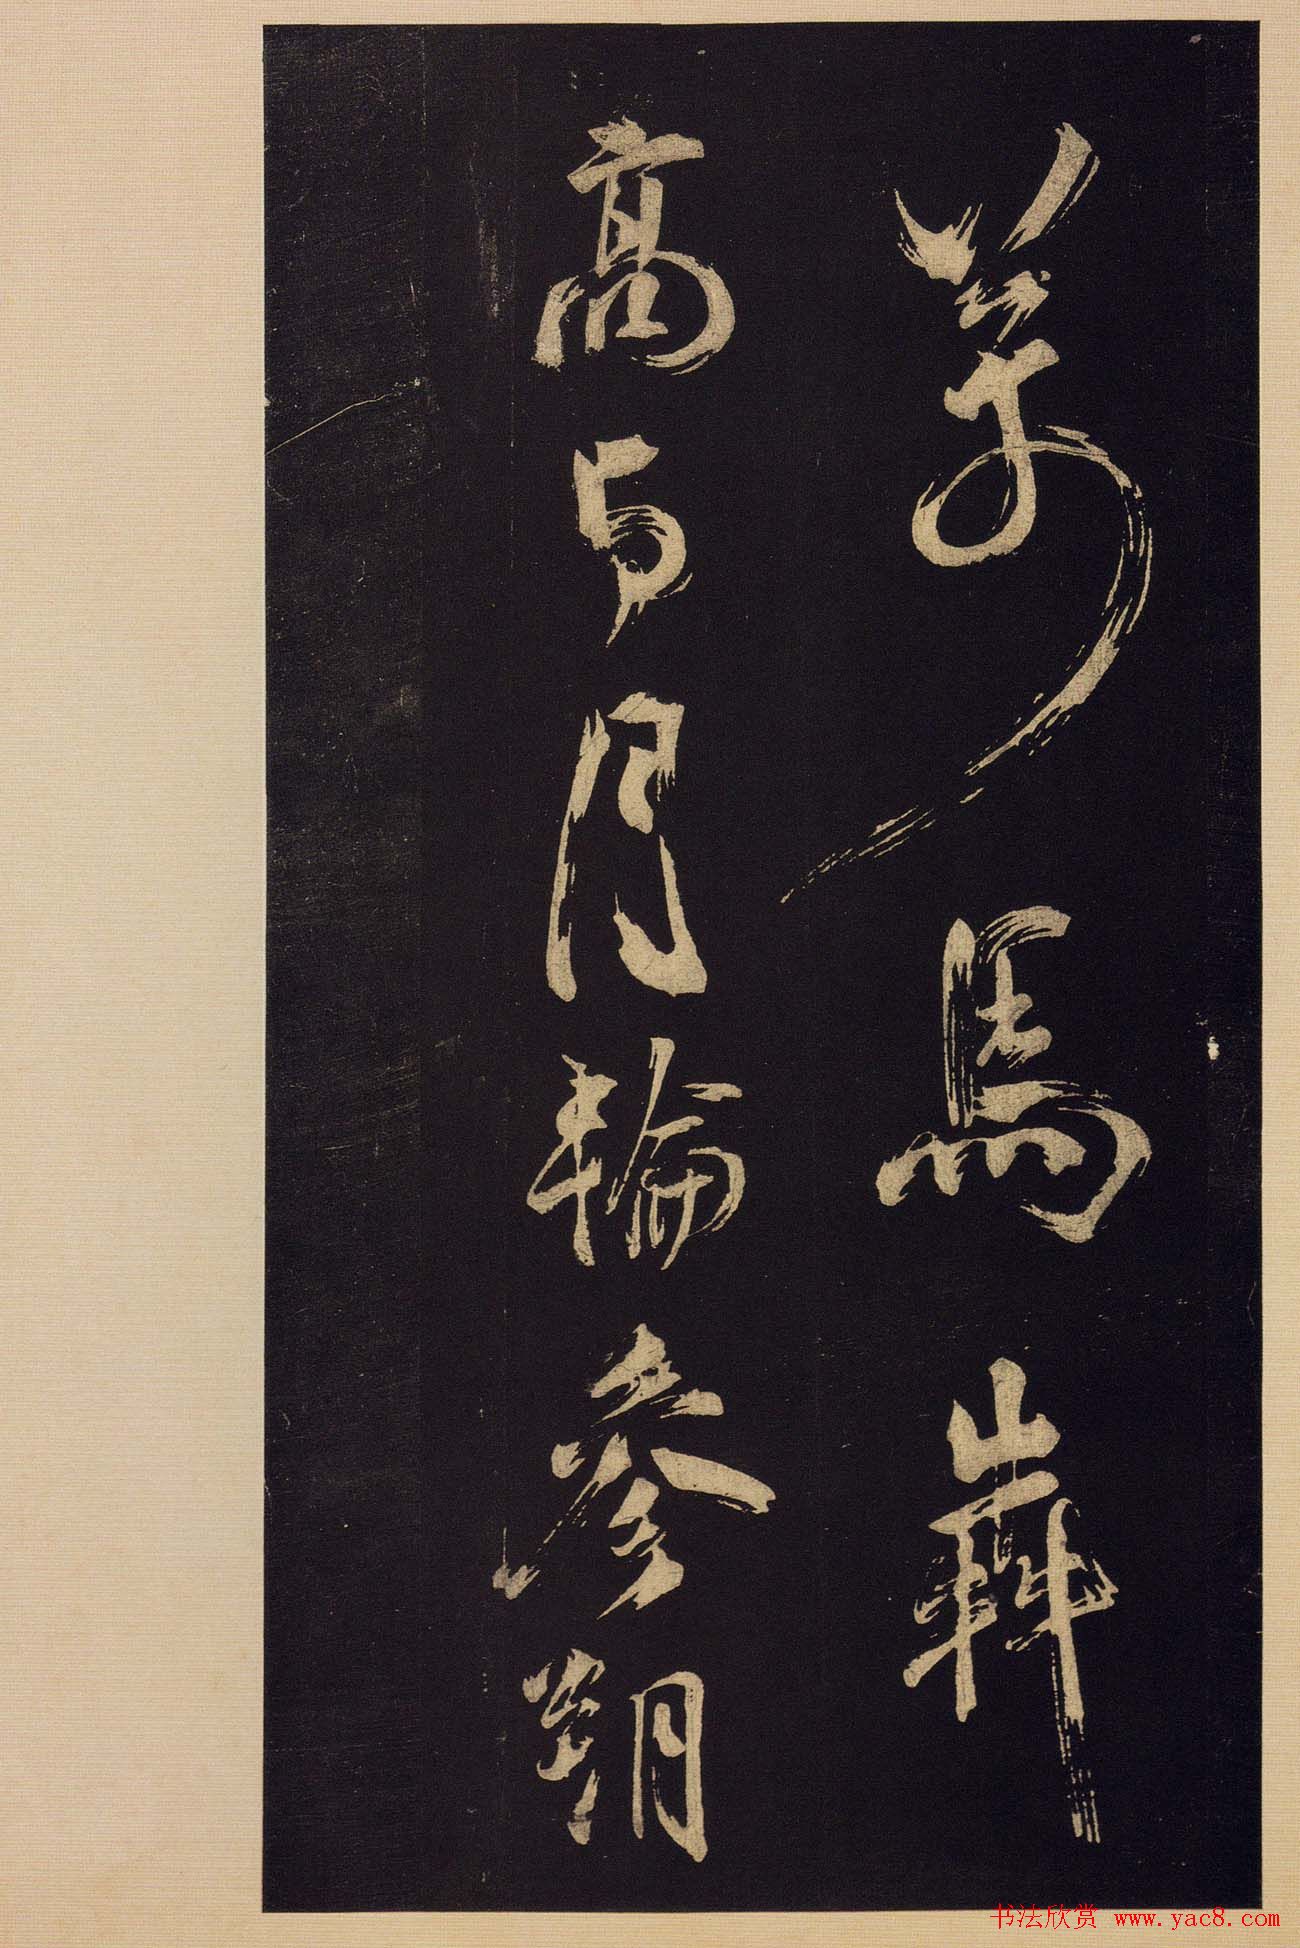 萬馬犇
高与月輪參朔
书法欣赏 www.yac8.com